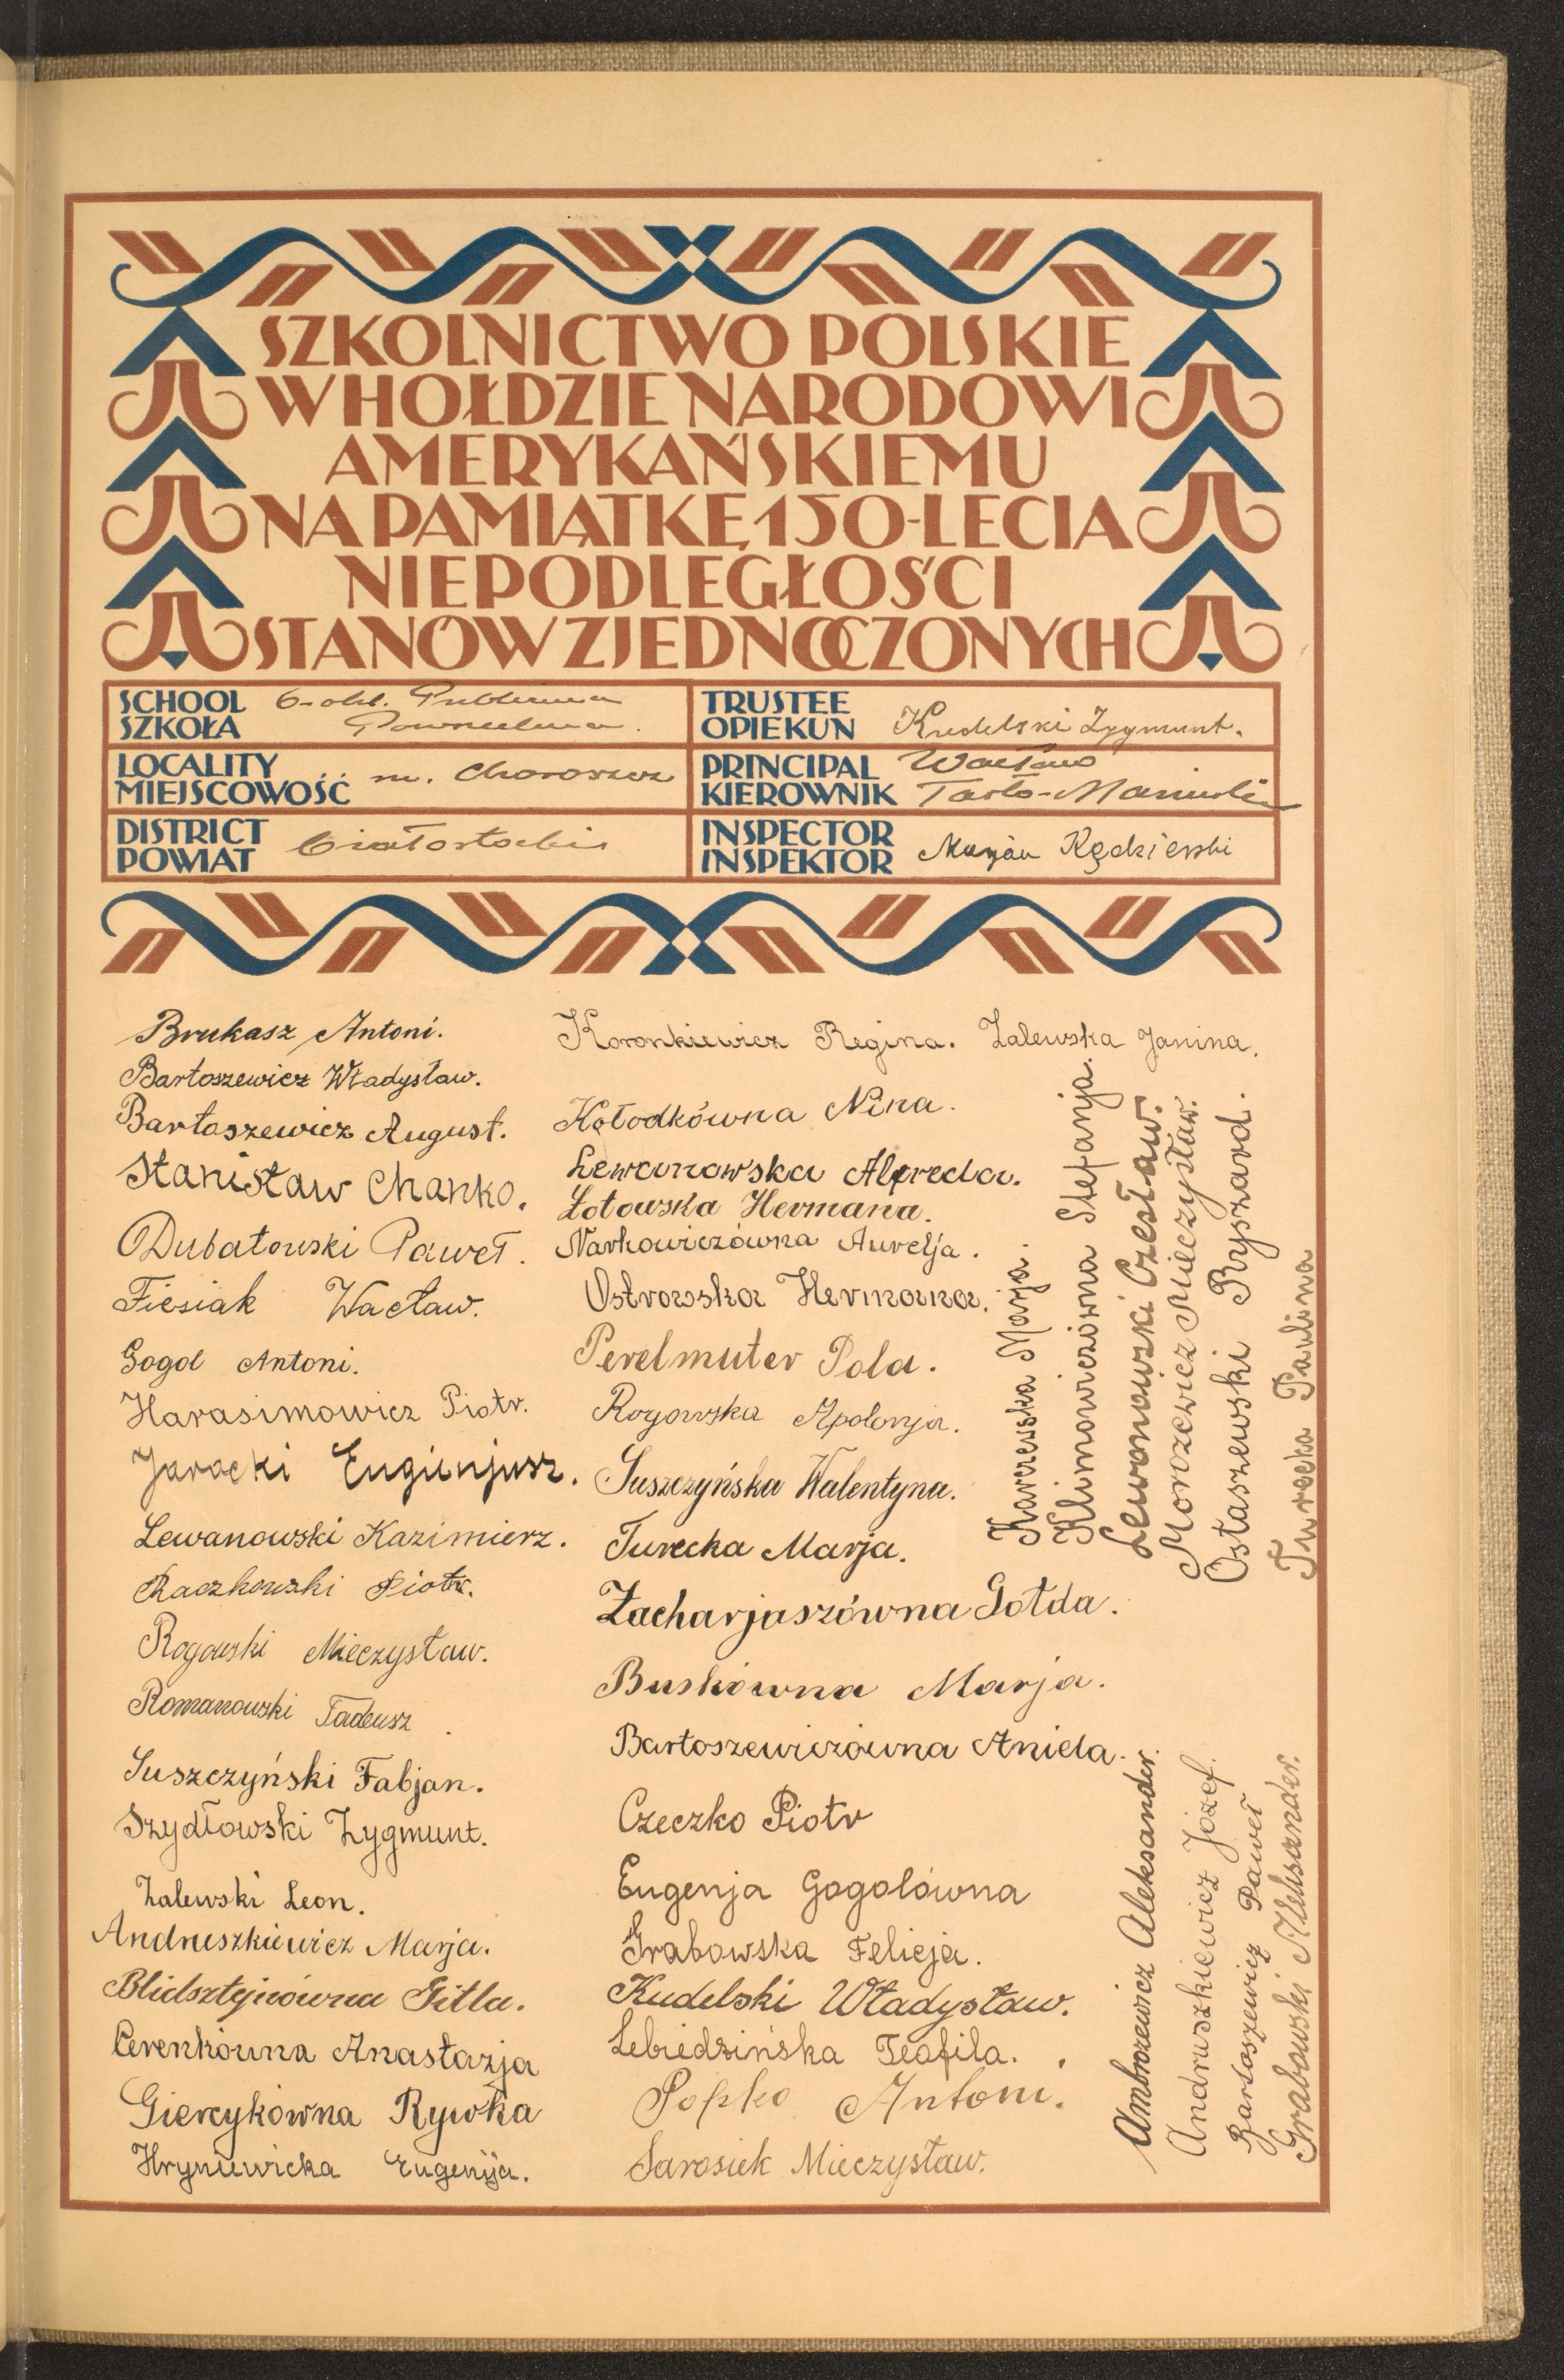 SZKOLNICTWO POLSKIE
W HOŁDZIE NARODOWI
AMERYKAŃSKIEMU
NA PAMIĄTKĘ 150-LECIA
NIEPODLEGŁOŚCI
STANÓW ZJEDNOCZONYCH
SCHOOL
SZKOŁA
6-okl. Publiczna
Powszechna.
TRUSTEE
OPIEKUN
Kudelski Zygmunt.
LOCALITY
MIEJSCOWOŚĆ
m. Choroszcz
PRINCIPAL
KIEROWNIK
Wacław
DISTRICT
POWIAT
białostocki
INSPECTOR
INSPEKTOR
Marjan Kędzierski
Brukasz Antoni.
Bartoszewicz Władysław.
Bartoszewicz August.
Stanisław Chańko.
Dubatowski Paweł.
Fiesiak Wacław.
Gogol Antoni.
Harasimowicz Piotr.
Jarocki Eugienjusz.
Lewanowski Kazimierz.
Raczkowski Piotr.
Rogowski Mieczysław.
Romanowski Tadeusz.
Suszczyński Fabjan.
Szydłowski Zygmunt.
Zalewski Leon.
Andruszkiewicz Marja.
Blidsztejnówna Gitla.
Cerenkówna Anastazja
Giercykówna Rywka
Hryniewicka Eugenija.
Koronkiewicz Regina.
Kołodkówna Nina.
Lewonowska Alfreda.
Łotowska Hermana.
Narkowiczówna Aurelja.
Ostrowska Hermana.
Perelmuter Pola.
Rogowska Apolonja.
Suszczyńska Walentyna.
Turecka Marja.
Zacharjaszówna Gołda.
Buskówna Marja.
Bartoszewiczówna Aniela.
Czeczko Piotr
Eugenja Gogolówna
Grabowska Felicja.
Kudelski Władysław.
Lebiedzińska Teofila.
Popko Antoni.
Sarosiek Mieczysław.
Zalewska Janina.
Karczewska Marja.
Klimowiczówna Stefanja.
Lewonowski Czesław.
Morozewicz Mieczysław.
Ostaszewski Ryszard.
Turecka Paulina
Ambrożewicz Aleksander.
Andruszkiewicz Józef.
Bartoszewicz Paweł
Grabowski Aleksander.